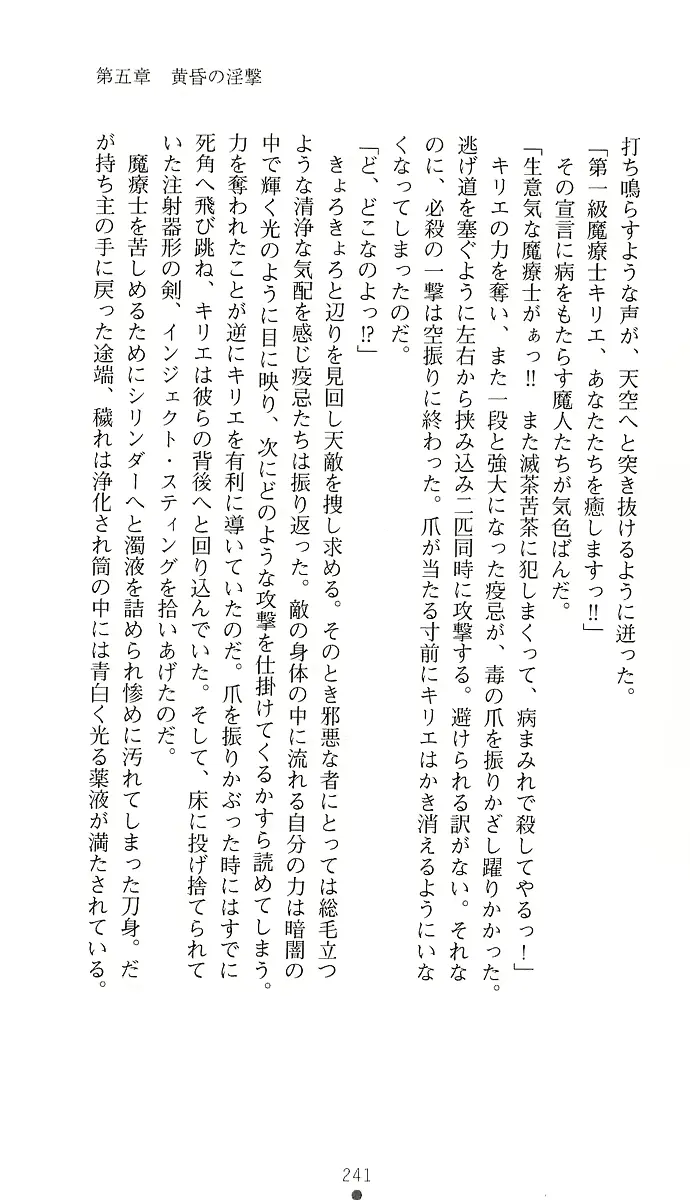 第五章　黄昏の淫撃
打ち鳴らすような声が、天空へと突き抜けるように迸った。
「第一級魔療士キリエ、あなたたちを癒しますっ!!」
その宣言に病をもたらす魔人たちが気色ばんだ。
「生意気な魔療士がぁっ!!　また滅茶苦茶に犯しまくって、病まみれで殺してやるっ！」
キリエの力を奪い、また一段と強大になった疫忌が、毒の爪を振りかざし躍りかかった。
逃げ道を塞ぐように左右から挟み込み二匹同時に攻撃する。避けられる訳がない。それな
のに、必殺の一撃は空振りに終わった。爪が当たる寸前にキリエはかき消えるようにいな
くなってしまったのだ。
「ど、どこなのよっ!?」
きょろきょろと辺りを見回し天敵を捜し求める。そのとき邪悪な者にとっては総毛立つ
ような清浄な気配を感じ疫忌たちは振り返った。敵の身体の中に流れる自分の力は暗闇の
中で輝く光のように目に映り、次にどのような攻撃を仕掛けてくるかすら読めてしまう。
力を奪われたことが逆にキリエを有利に導いていたのだ。爪を振りかぶった時にはすでに
死角へ飛び跳ね、キリエは彼らの背後へと回り込んでいた。そして、床に投げ捨てられて
いた注射器形の剣、インジェクト・スティングを拾いあげたのだ。
魔療士を苦しめるためにシリンダーへと濁液を詰められ惨めに汚れてしまった刀身。だ
が持ち主の手に戻った途端、穢れは浄化され筒の中には青白く光る薬液が満たされている。
241